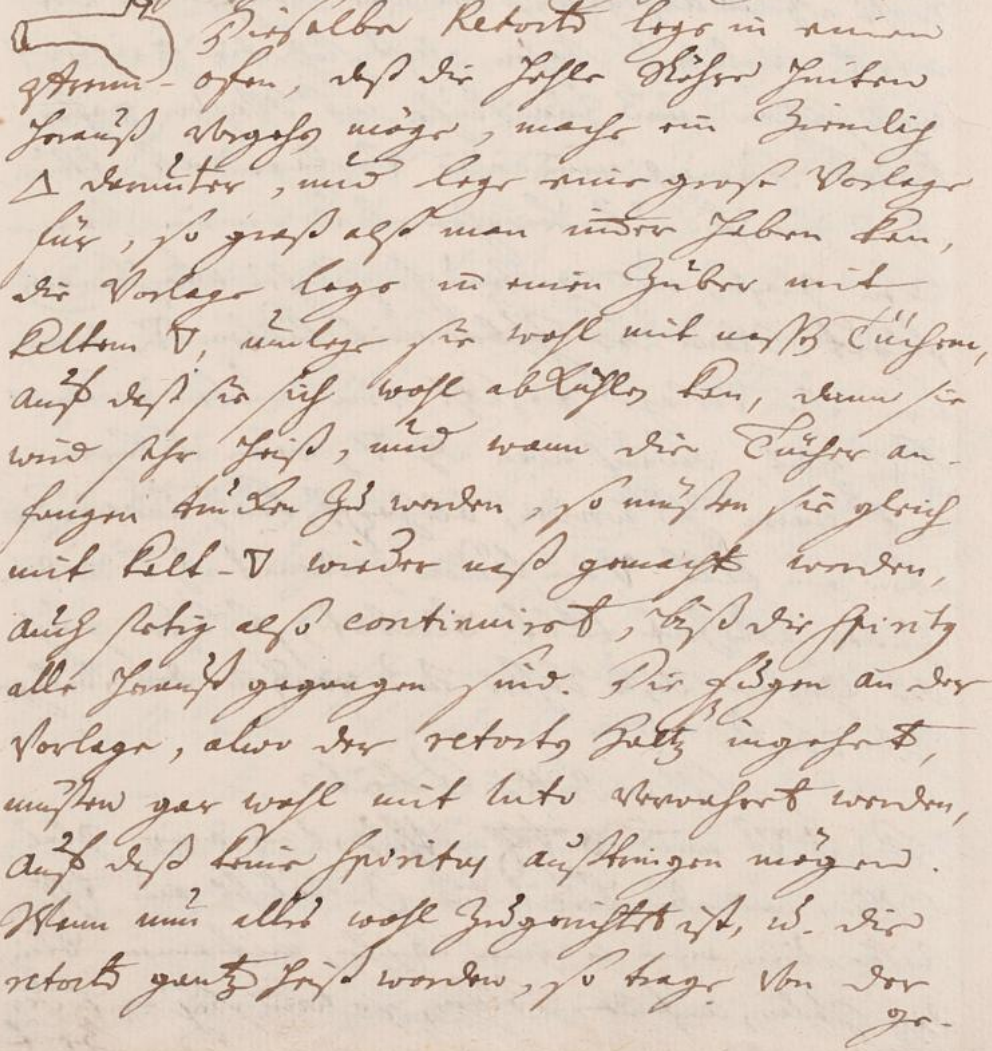 Dieselbe Retorte lege in einen
ofen, daß die Hohle Röhre hinten
herauß gehen möge, mache ein Ziemlich
🜂 darunter, und lege eine große Vorlage
für, so groß alß man im̄er haben kan,
die Vorlage lege in einen Zuber mit
kaltem 🜄, umlege sie wohl mit nassen Tüchern,
auf daß sie sich wohl abkühlen kan, dann sie
wird sehr heiß, und wann die Tücher an-
fangen trucken zu werden, so müßen sie gleich
mit kalt-🜄 wieder naß gemacht werden,
auch stetig also continuiret, biß die Spiritus
alle herauß gegangen sind. Die Fugen an der
Vorlage, alwo der retorten Halß ingehet,
müßen gar wohl mit luto verwahret werden,
auf daß keine Spiritus außtringen mögen.
Wann nun alles wohl Zugerichtet ist, u. die
retorte gantz heiß worden, so trage von der
ge-